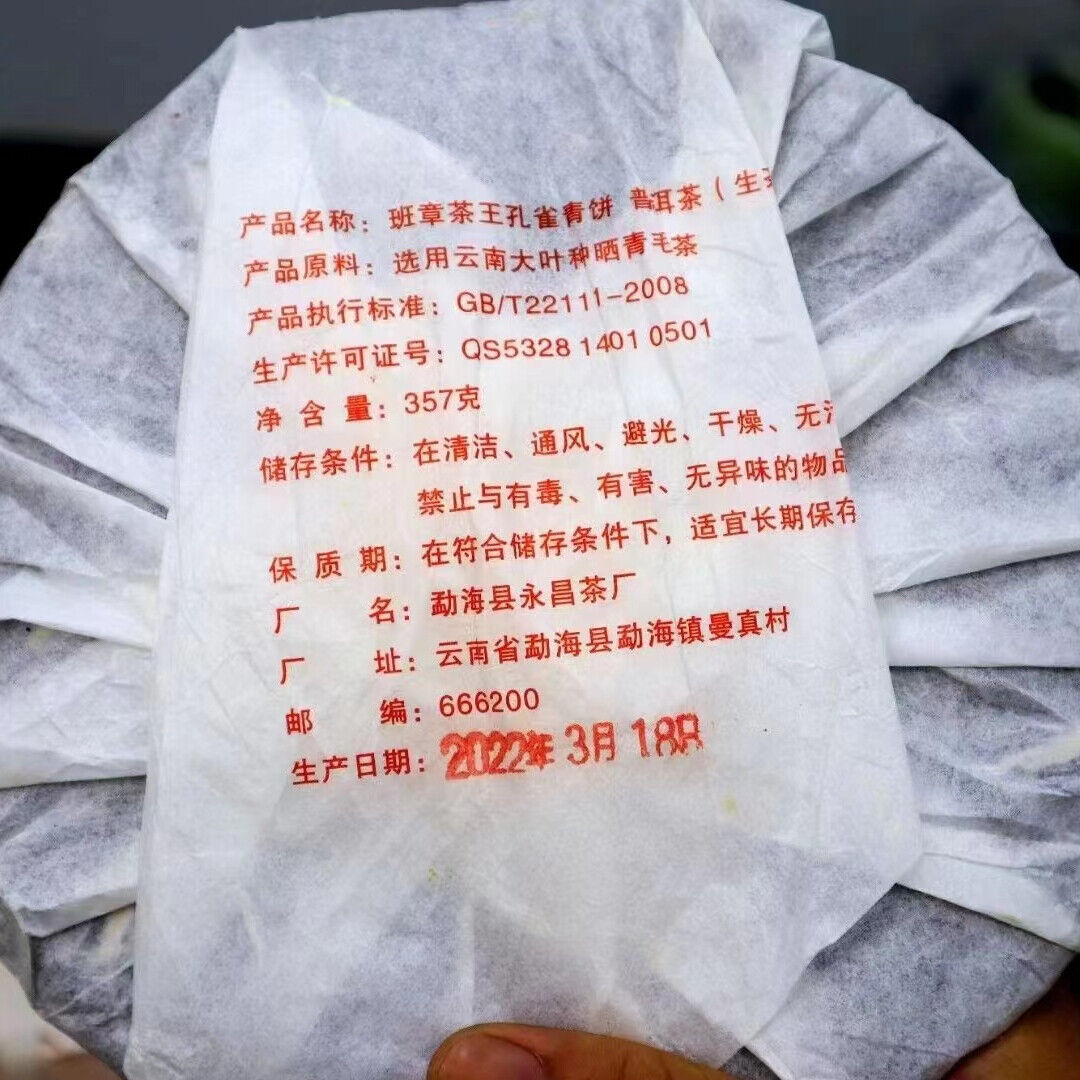 产品名称：班章茶王孔雀青饼 普洱茶（生
产品原料：选用云南大叶种晒青毛茶
产品执行标准：GB/T22111-2008
生产许可证号：QS5328 1401 0501
净含量：357克
储存条件：在清洁、通风、避光、干燥、无
禁止与有毒、有害、无异味的物品
保质期：在符合储存条件下，适宜长期保存
厂名：勐海县永昌茶厂
厂址：云南省勐海县勐海镇曼真村
邮编：666200
生产日期：2022年3月18日